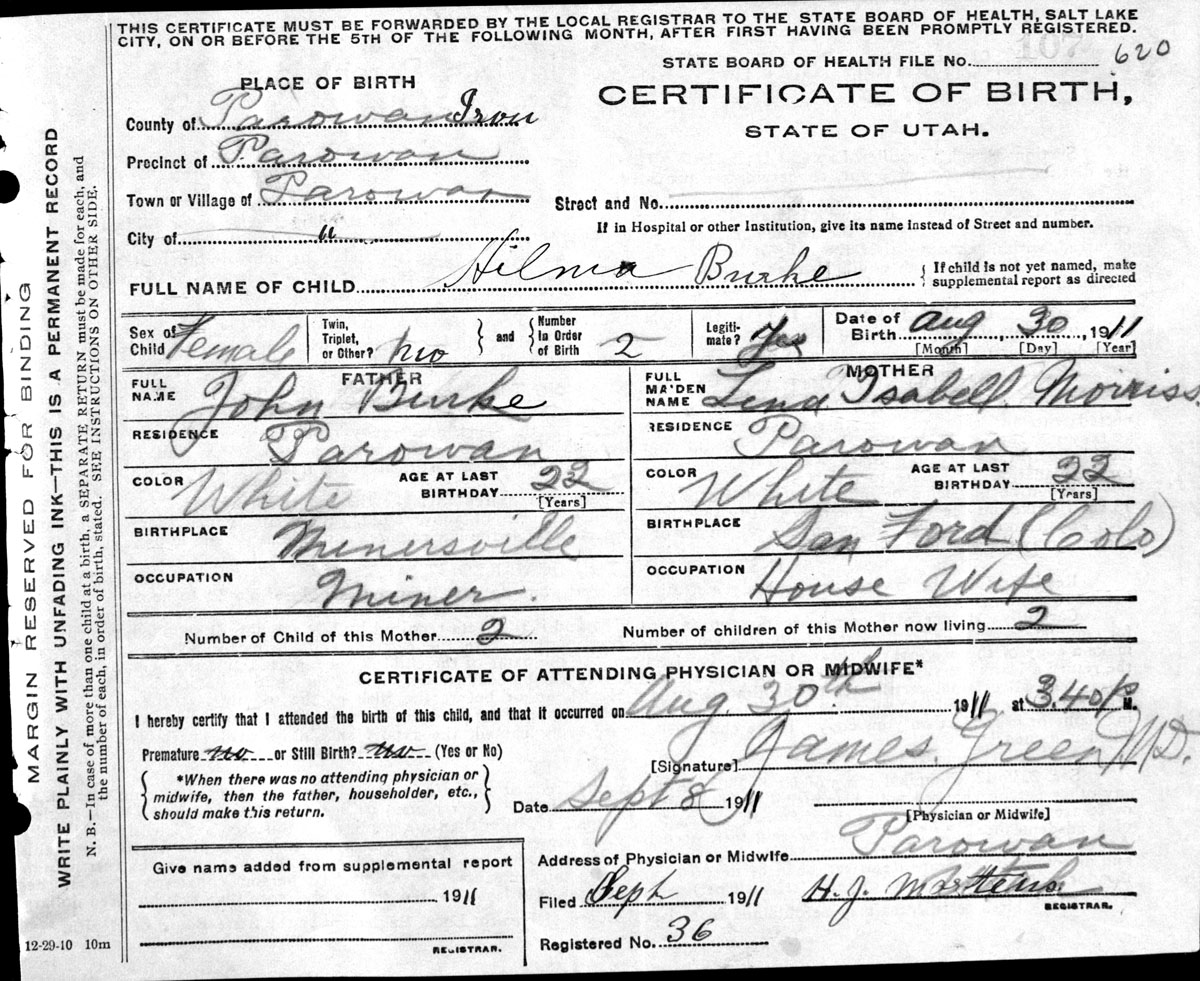 THIS CERTIFICATE MUST BE FORWARDED BY THE LOCAL REGISTRAR TO THE STATE BOARD OF HEALTH, SALT LAKE
CITY, ON OR BEFORE THE 5TH OF THE FOLLOWING MONTH, AFTER FIRST HAVING BEEN PROMPTLY REGISTERED.
107
STATE BOARD OF HEALTH FILE No. 620
PLACE OF BIRTH
CERTIFICATE OF BIRTH,
STATE OF UTAH.
County of Parowan Iron
Precinct of Parowan
Town or Village of Parowan
Street and No.
City of "
If in Hospital or other Institution, give its name instead of Street and number.
FULL NAME OF CHILD Hilma Burke
{ If child is not yet named, make
supplemental report as directed
Sex of Child Female
Twin, Triplet, or Other? no } and { Number in Order of Birth 2
Legiti-mate? Yes
Date of Birth Aug 30, 1911
[Month] [Day] [Year]
FATHER
FULL NAME John Burke
RESIDENCE Parowan
COLOR White AGE AT LAST BIRTHDAY 22
[Years]
BIRTHPLACE Minersville
OCCUPATION Miner.
MOTHER
FULL MAIDEN NAME Lena Isabell Morriss.
RESIDENCE Parowan
COLOR White AGE AT LAST BIRTHDAY 22
[Years]
BIRTHPLACE San Ford (Colo)
OCCUPATION House Wife
Number of Child of this Mother 2 Number of children of this Mother now living 2
CERTIFICATE OF ATTENDING PHYSICIAN OR MIDWIFE*
I hereby certify that I attended the birth of this child, and that it occurred on Aug. 30th 1911 at 3.40 P M.
Premature no or Still Birth? no (Yes or No)
[Signature] James Green M.D.
{ *When there was no attending physician or
midwife, then the father, householder, etc.,
should make this return. }
Date Sept 8 1911
[Physician or Midwife]
Address of Physician or Midwife Parowan
Give name added from supplemental report
1911
REGISTRAR.
Filed Sept 1911 H. J.
REGISTRAR.
Registered No. 36
12-29-10 10m
MARGIN RESERVED FOR BINDING
WRITE PLAINLY WITH UNFADING INK—THIS IS A PERMANENT RECORD
N. B.—In case of more than one child at a birth, a SEPARATE RETURN must be made for each, and
the number of each, in order of birth, stated. SEE INSTRUCTIONS ON OTHER SIDE.